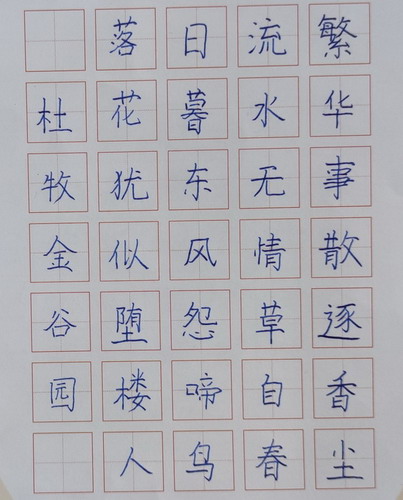 繁华事散逐香尘
流水无情草自春
日暮东风怨啼鸟
落花犹似堕楼人
杜牧金谷园